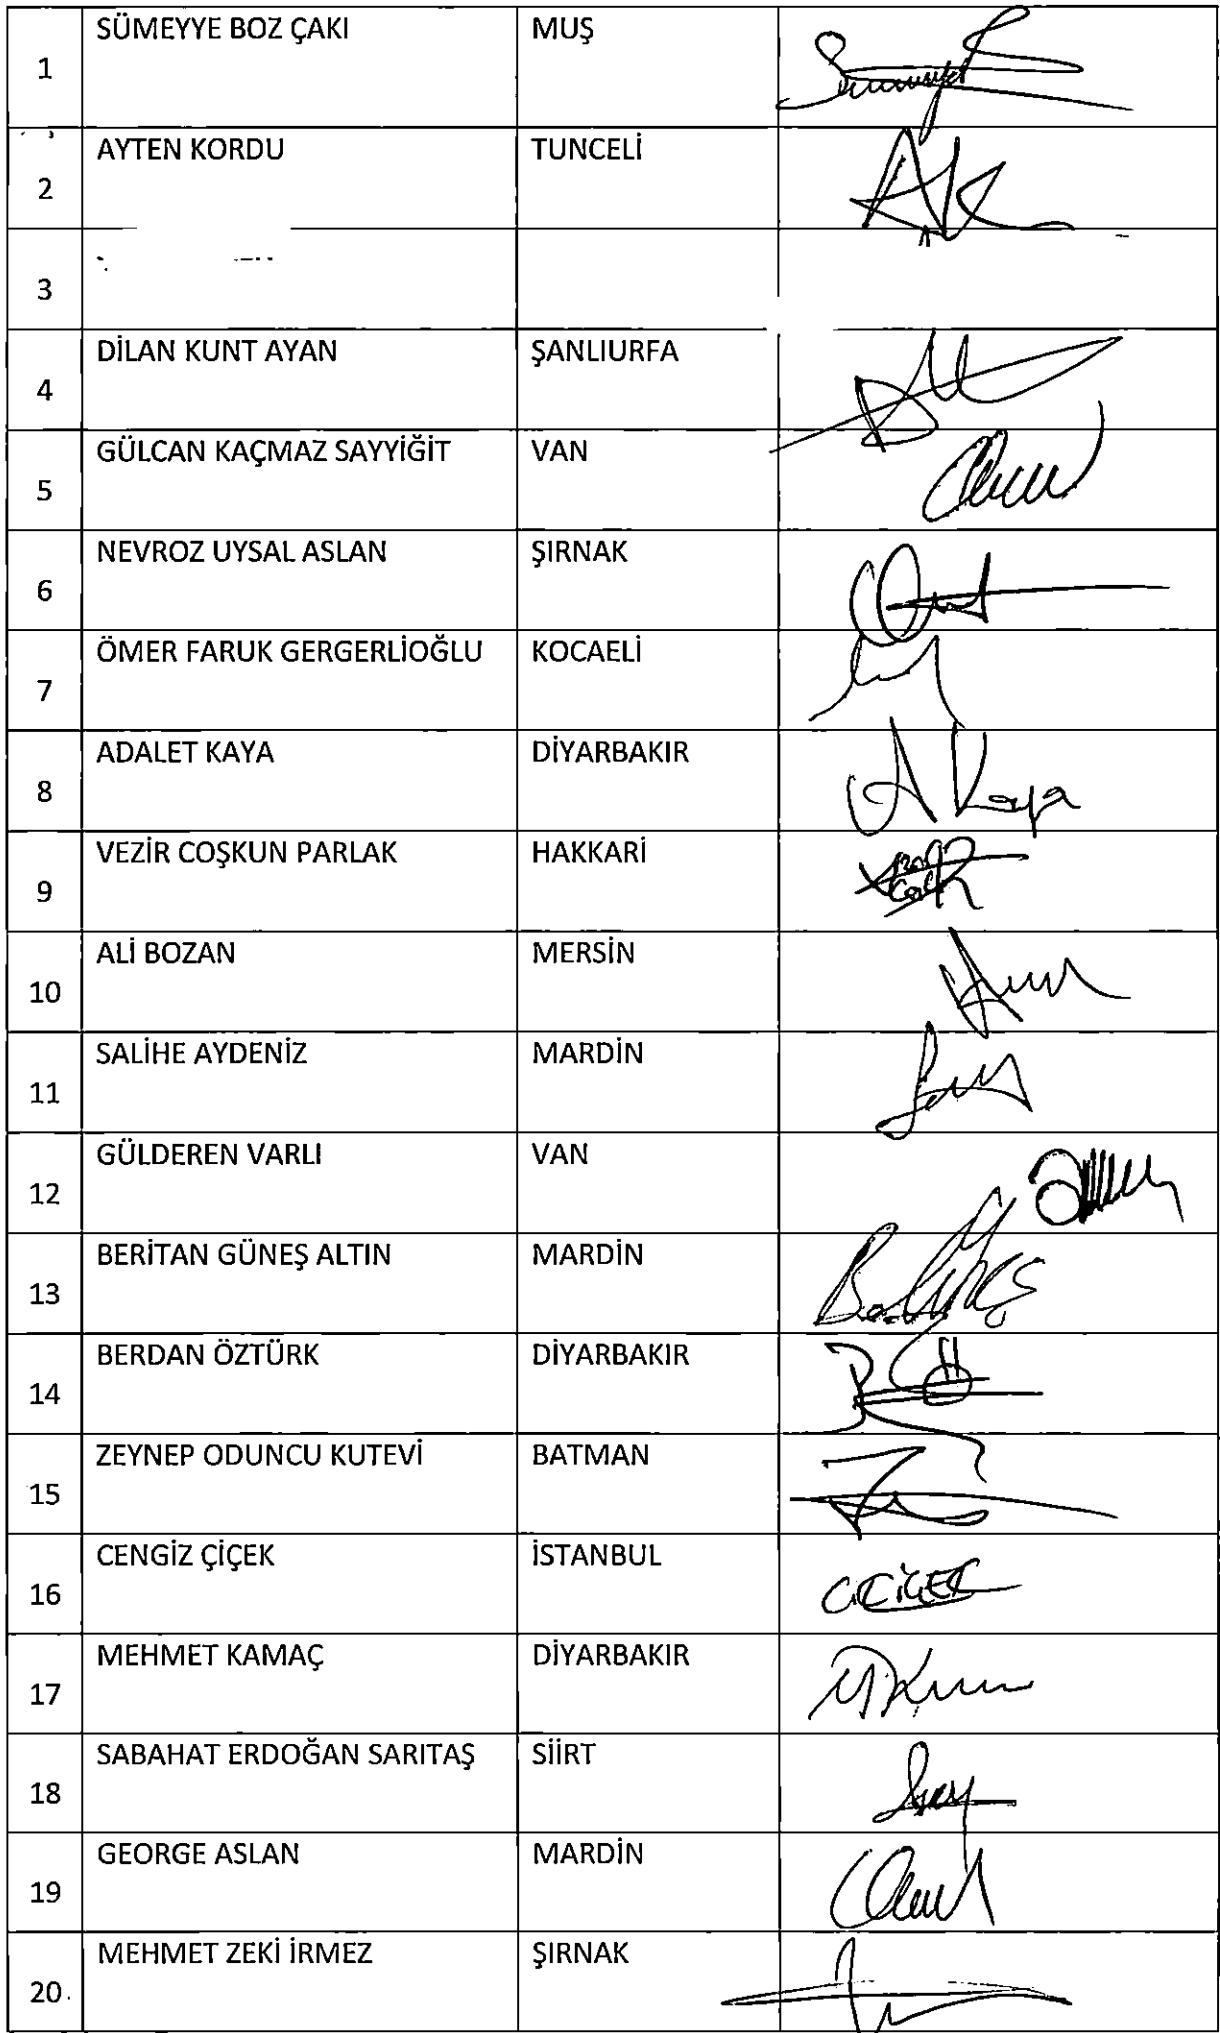 1 SÜMEYYE BOZ ÇAKI MUŞ
2 AYTEN KORDU TUNCELİ
3
4 DİLAN KUNT AYAN ŞANLIURFA
5 GÜLCAN KAÇMAZ SAYYİĞİT VAN
6 NEVROZ UYSAL ASLAN ŞIRNAK
7 ÖMER FARUK GERGERLİOĞLU KOCAELİ
8 ADALET KAYA DİYARBAKIR A Kaya
9 VEZİR COŞKUN PARLAK HAKKARİ
10 ALİ BOZAN MERSİN
11 SALİHE AYDENİZ MARDİN
12 GÜLDEREN VARLI VAN
13 BERİTAN GÜNEŞ ALTIN MARDİN
14 BERDAN ÖZTÜRK DİYARBAKIR
15 ZEYNEP ODUNCU KUTEVİ BATMAN
16 CENGİZ ÇİÇEK İSTANBUL C.ÇİÇEK
17 MEHMET KAMAÇ DİYARBAKIR
18 SABAHAT ERDOĞAN SARITAŞ SİİRT
19 GEORGE ASLAN MARDİN
20 MEHMET ZEKİ İRMEZ ŞIRNAK